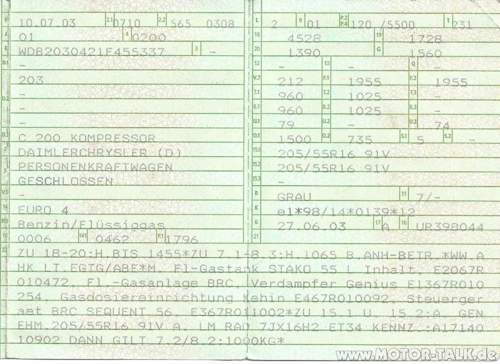 10.07.03 0710 565 0308
01 0200
WDB2030421F455337 -
-
203
-
-
C 200 KOMPRESSOR
DAIMLERCHRYSLER (D)
PERSONENKRAFTWAGEN
GESCHLOSSEN
-
EURO 4
Benzin/Flüssiggas
0006 0462 1796
L 2 9 01 P.2 P.4 120 /5500 T 231
18 4528 19 1728
20 1390 G 1560
12 - 13 - Q -
V.7 212 F.1 1955 F.2 1955
7.1 960 7.2 1025 7.3 -
8.1 960 8.2 1025 8.3 -
U.1 79 U.2 - U.3 74
O.1 1500 O.2 735 S.1 5 S.2 -
15.1 205/55R16 91V
15.2 205/55R16 91V
15.3 -
R GRAU 11 7/-
K e1*98/14*0139*12
6 27.06.03 17 A 16 UR398044
21
ZU 18-20:H.BIS 1455*ZU 7.1-8.3:H.1065 B.ANH-BETR.*WW.A
HK LT.EGTG/ABE*M. Fl-Gastank STAKO 55 L Inhalt, E2067R
010472, Fl.-Gasanlage BRC, Verdampfer Genius E1367R010
254, Gasdosiereinrichtung Kehin E467R010092, Steuerger
aet BRC SEQUENT 56, E367R011002*ZU 15.1 U. 15.2:A. GEN
EHM.205/55R16 91V A. LM RAD 7JX16H2 ET34 KENNZ.:A17140
10902 DANN GILT 7.2/8.2:1000KG*
www.MOTOR-TALK.de